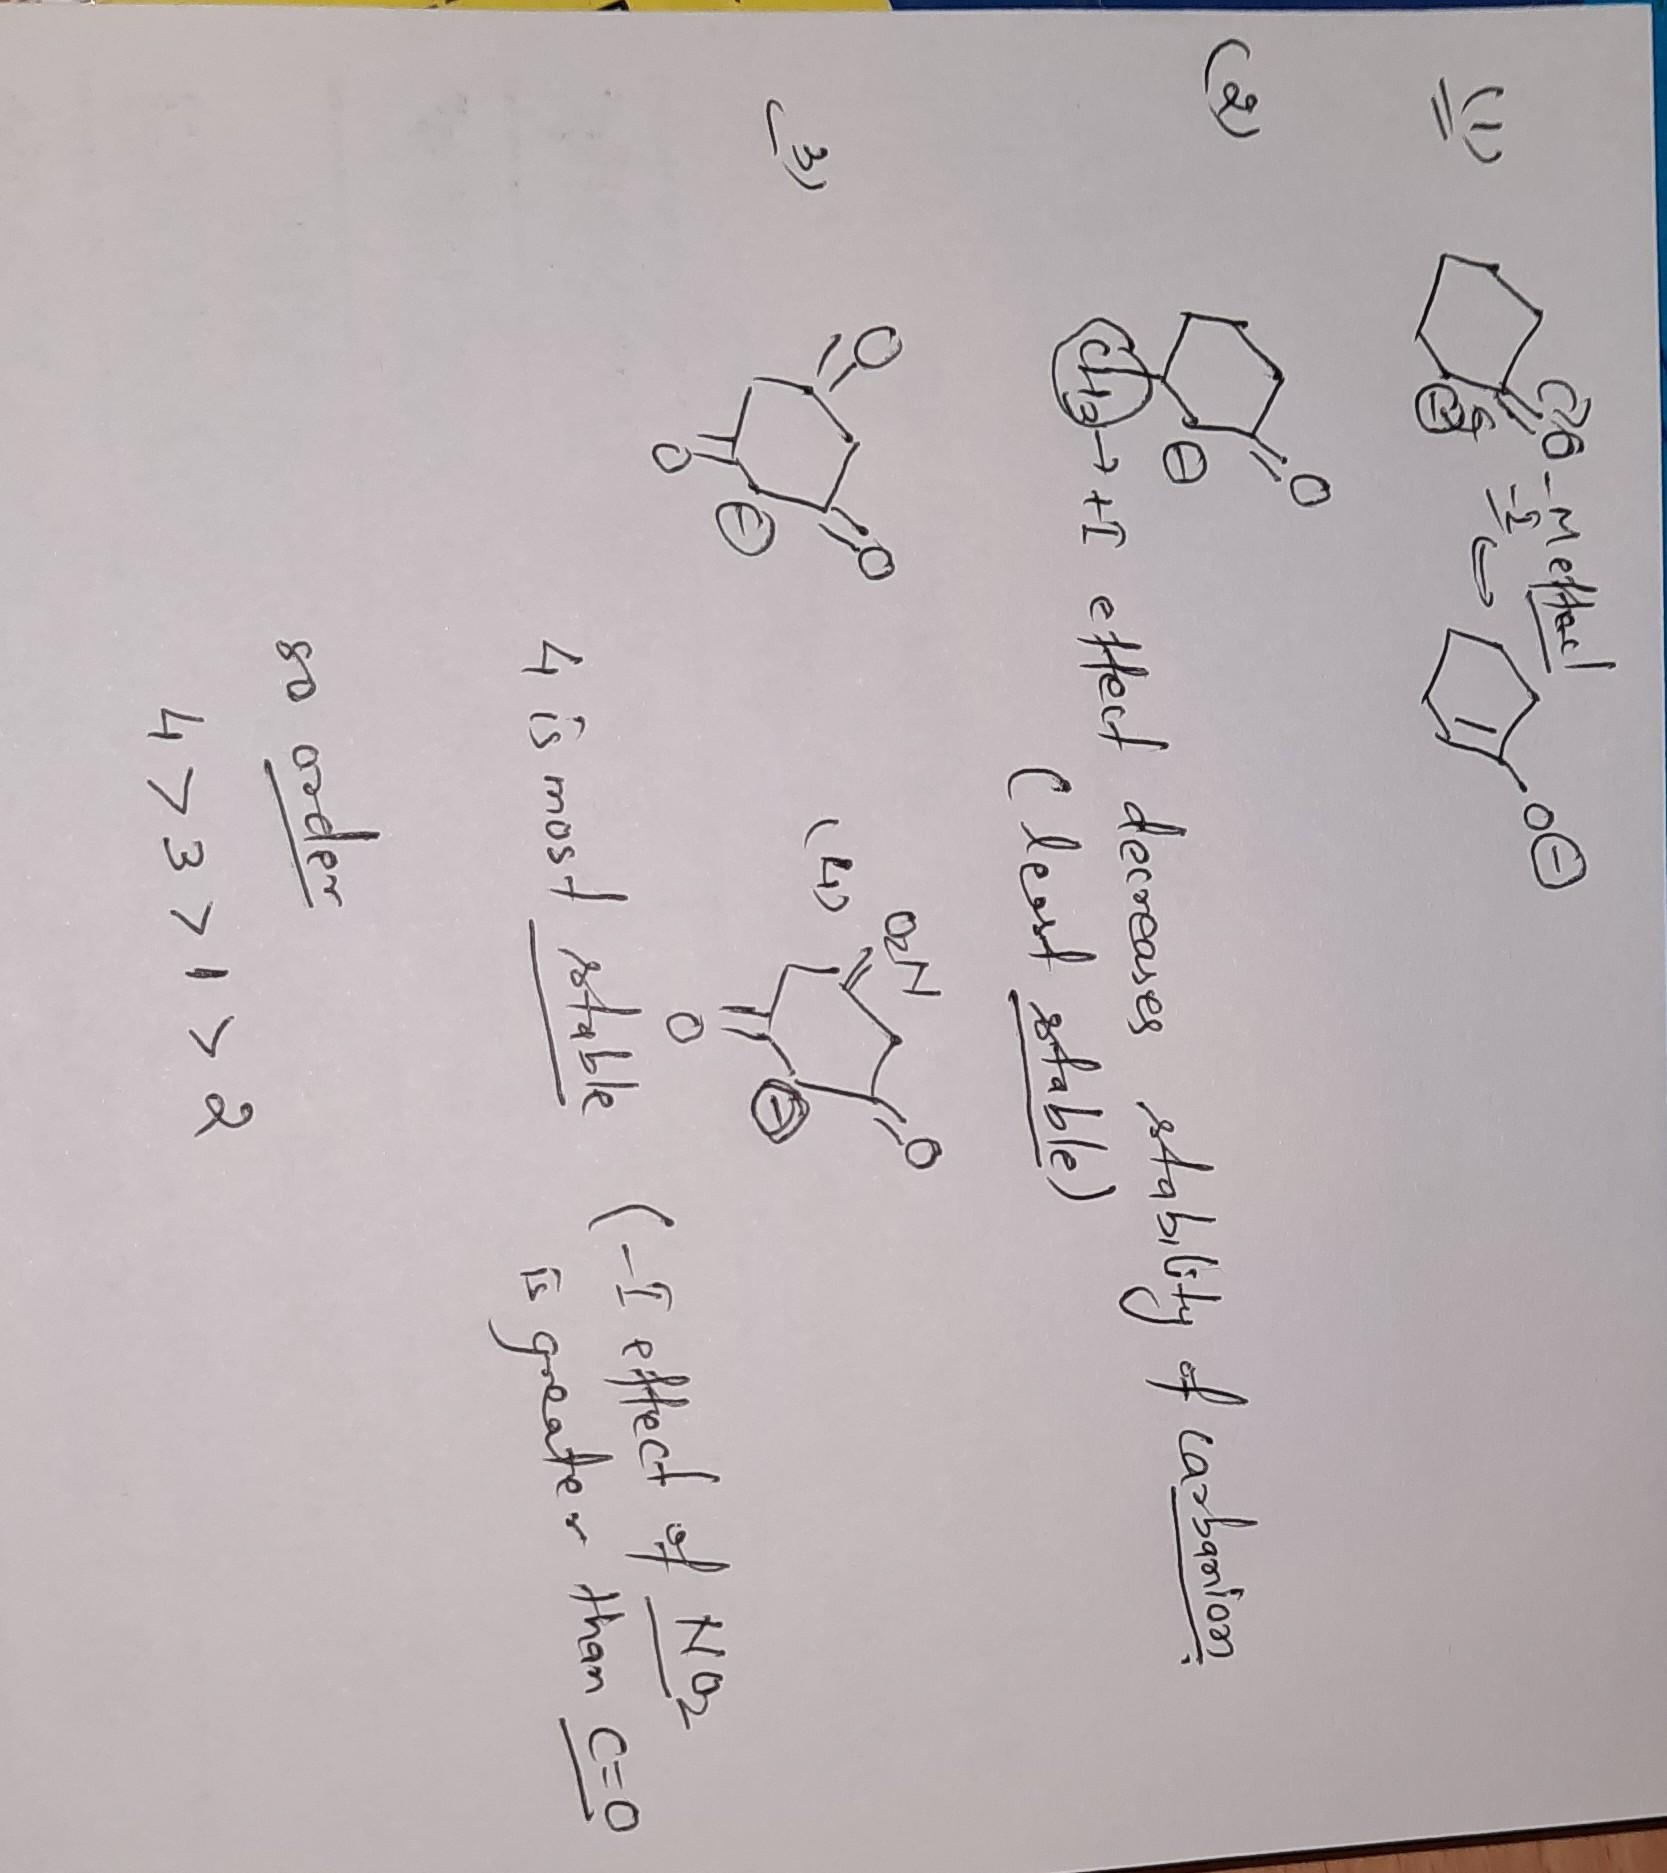 (1)
O - M effect
-I
O⊖
⊖
(2)
O
⊖
CH3 → +I effect decreases stability of carbanion.
(least stable)
(3)
O
O
O
⊖
(4)
O2N
O
O
⊖
4 is most stable (-I effect of NO2
is greater than C=O
so order
4 > 3 > 1 > 2